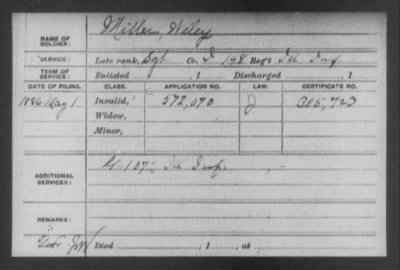 NAME OF SOLDIER: Miller, Wiley
SERVICE: Late rank, Sgt. Co. I 148 Reg't Ill Inf
TERM OF SERVICE: Enlisted , 1 Discharged , 1
DATE OF FILING. CLASS. APPLICATION NO. LAW. CERTIFICATE NO.
1886 May 1 Invalid, 572,070 J 385,723
Widow,
Minor,
ADDITIONAL SERVICES: G 137" Ill Inf.
REMARKS:
Died , 1 , at